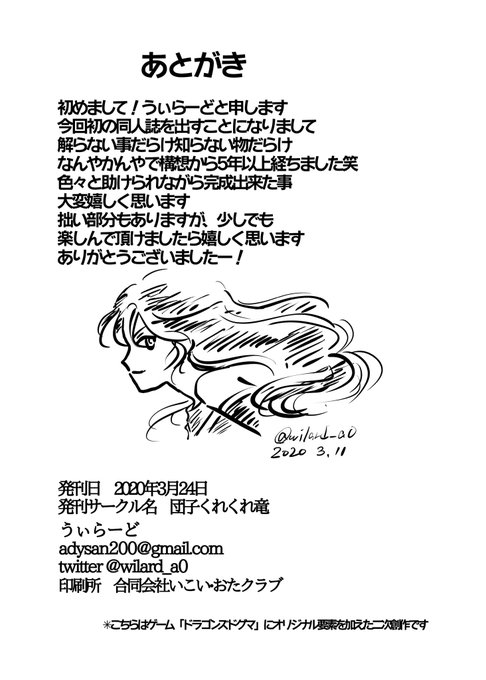 あとがき
初めまして！うぃらーどと申します
今回初の同人誌を出すことになりまして
解らない事だらけ知らない物だらけ
なんやかんやで構想から5年以上経ちました笑
色々と助けられながら完成出来た事
大変嬉しく思います
拙い部分もありますが、少しでも
楽しんで頂けましたら嬉しく思います
ありがとうございましたー！
@wilard_a0
2020 3.11
発刊日 2020年3月24日
発刊サークル名 団子くれくれ竜
うぃらーど
adysan200@gmail.com
twitter @wilard_a0
印刷所 合同会社いこい・おたクラブ
※こちらはゲーム「ドラゴンズドグマ」にオリジナル要素を加えた二次創作です